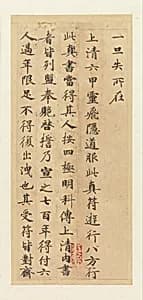 一旦失所在
上清六甲靈飛隱道服此真符遊行八方行
此真書當得其人按四極明科傳上清內書
者皆列盟奉贶啓誓乃宣之七百年得付六
人過年限足不得復出洩也其受符皆對齋